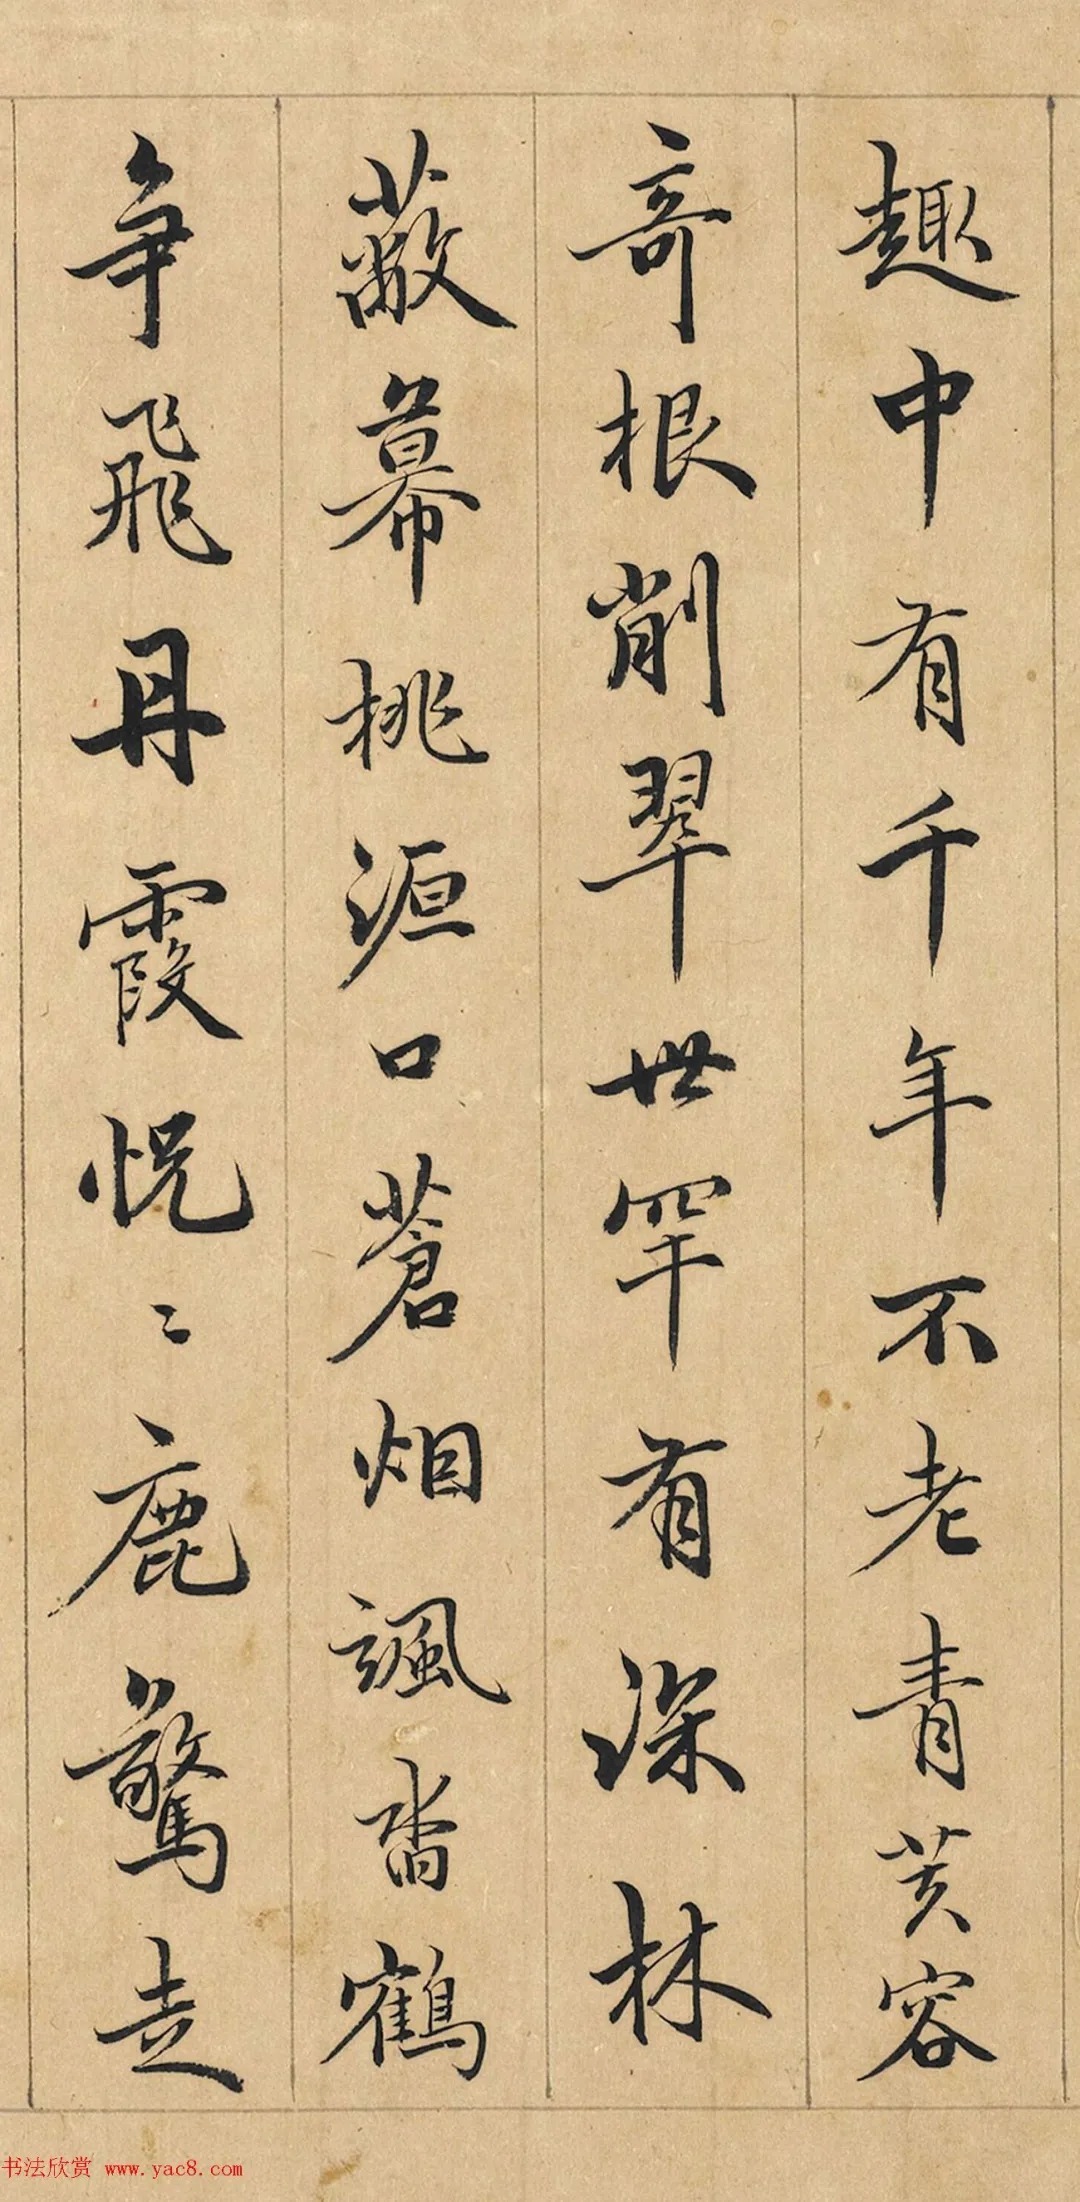 趣中有千年不老青芙容
奇根削翠世罕有深林
蔽幕桃源口蒼烟颯沓鶴
争飛丹霞恍々鹿驚走
书法欣赏 www.yac8.com